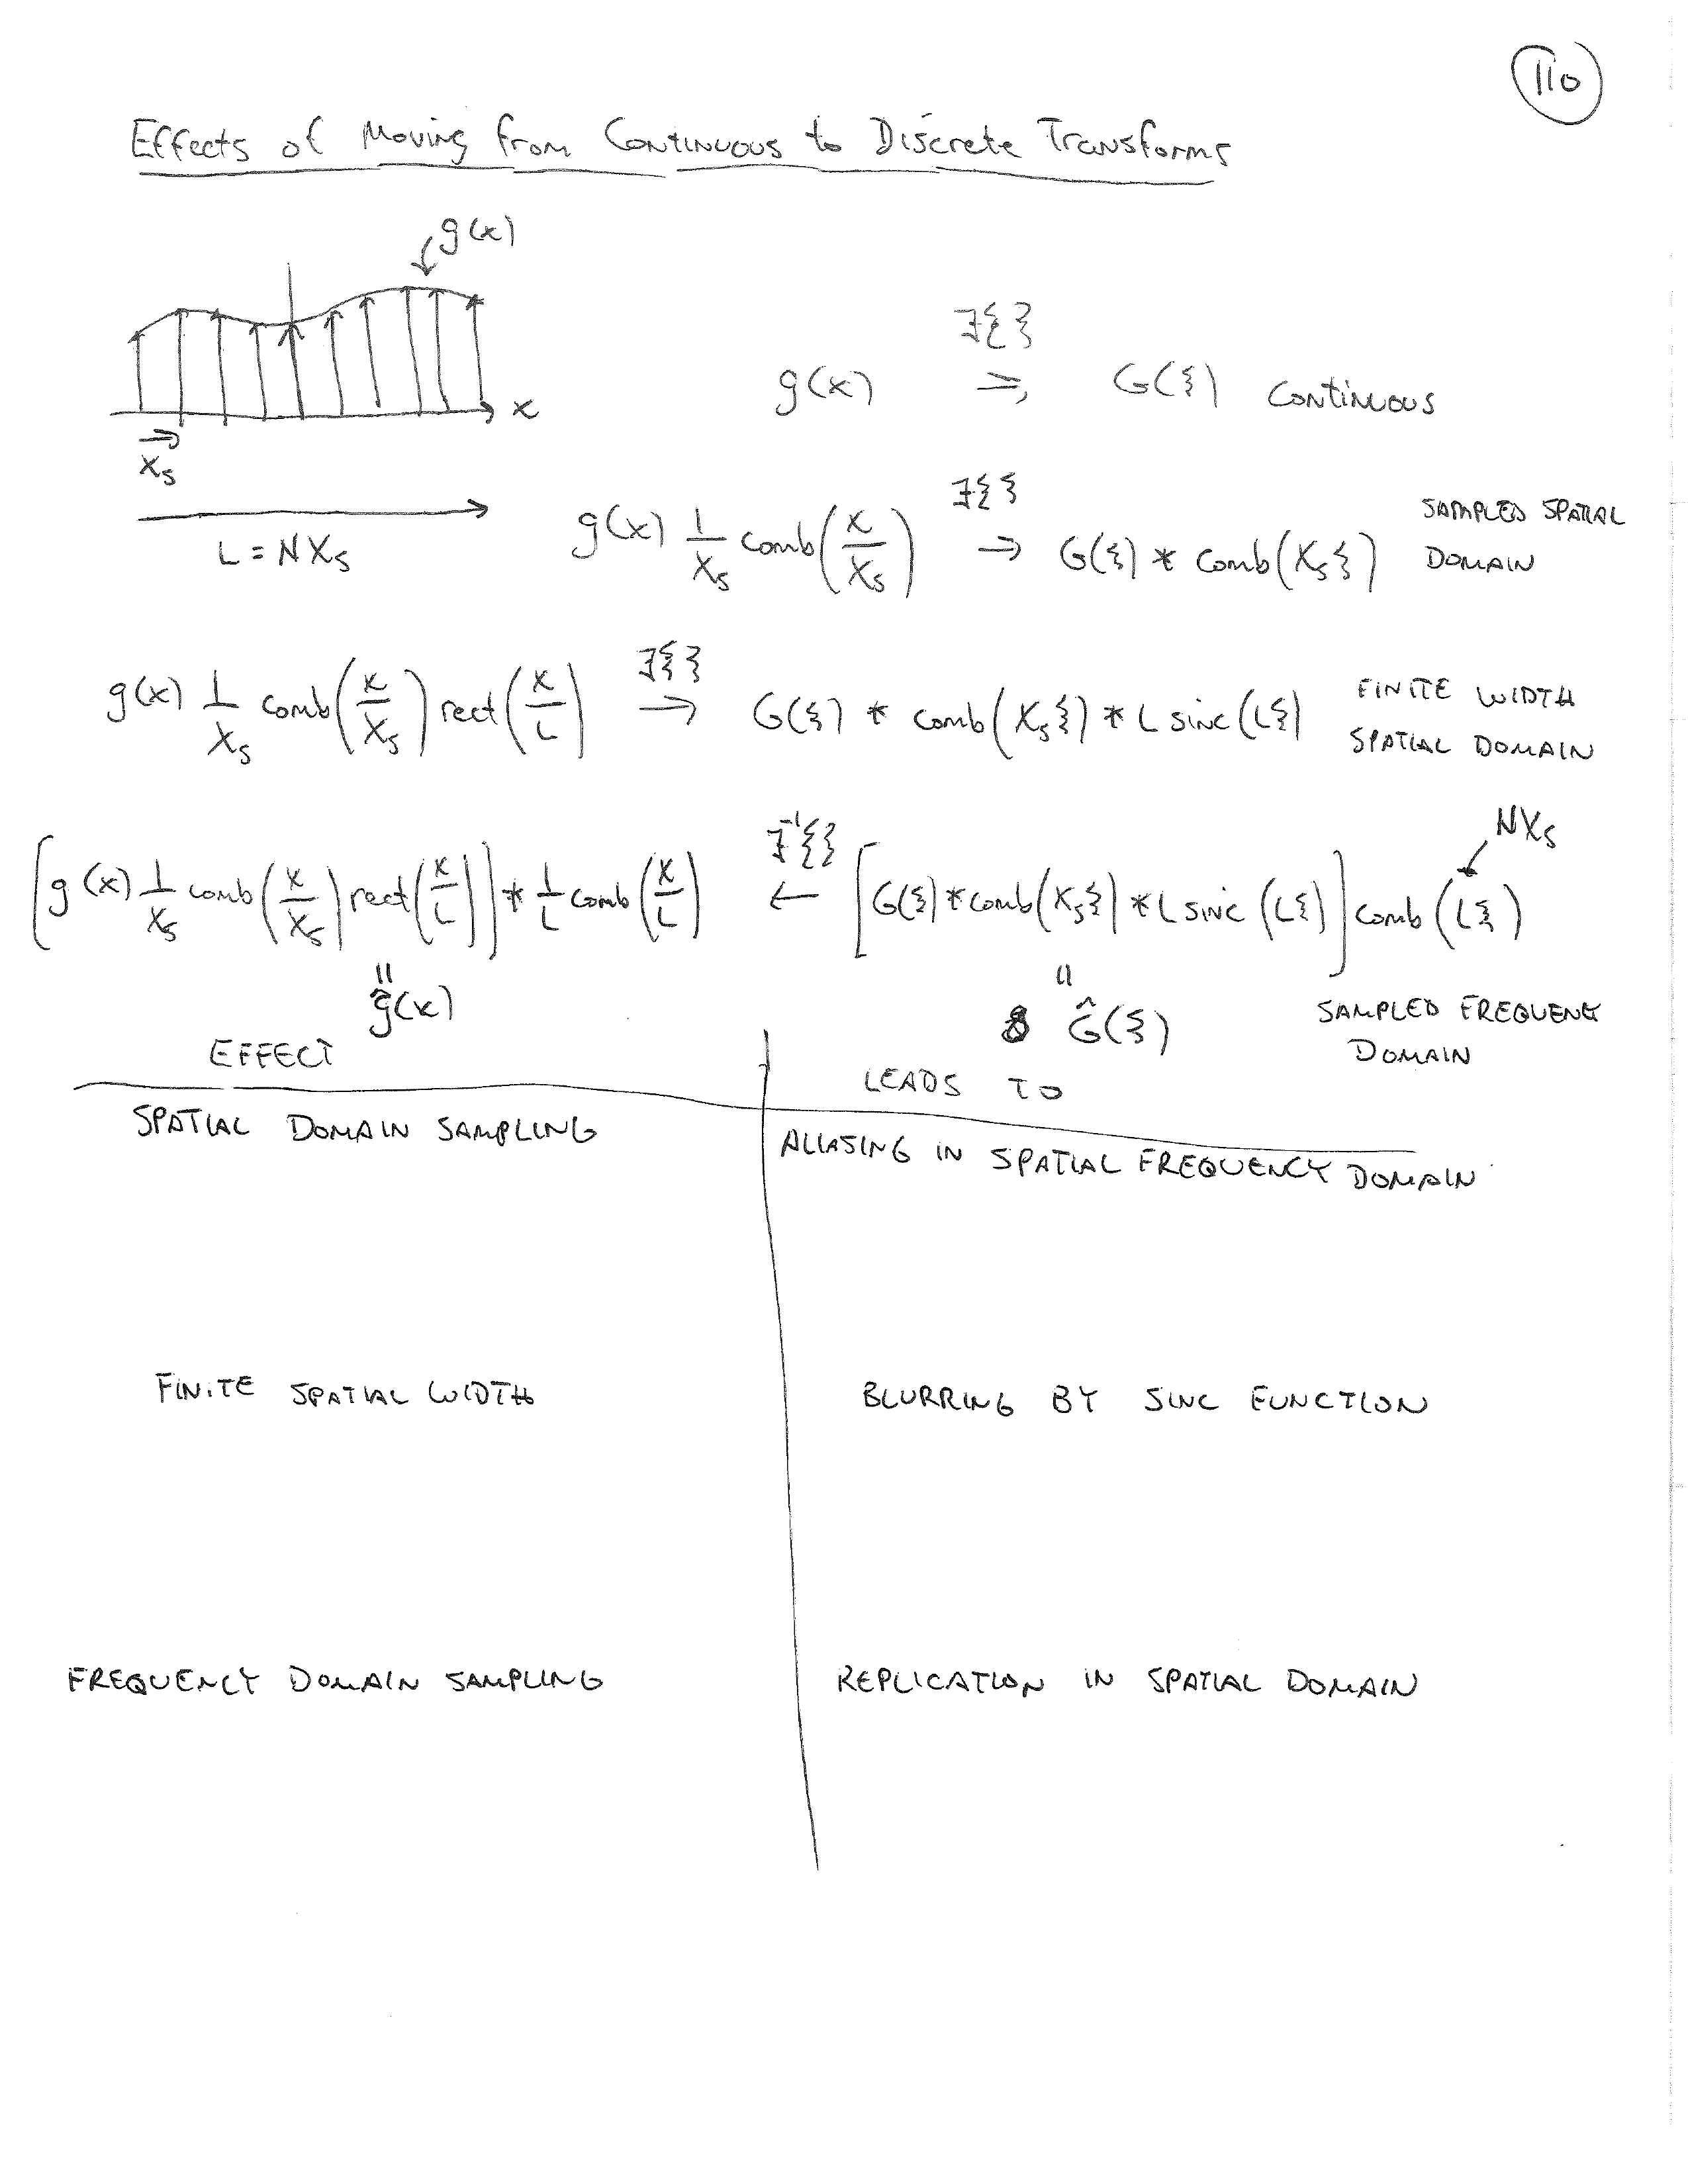 110
Effects of Moving from Continuous to Discrete Transforms
g(x)
x
X_S
L = NX_S
ℱ{ }
g(x) → G(ξ) CONTINUOUS
ℱ{ }
g(x) 1/X_S comb(x/X_S) → G(ξ) * comb(X_S ξ) SAMPLED SPATIAL
DOMAIN
ℱ{ }
g(x) 1/X_S comb(x/X_S) rect(x/L) → G(ξ) * comb(X_S ξ) * L sinc(Lξ) FINITE WIDTH
SPATIAL DOMAIN
NX_S
ℱ⁻¹{ }
[g(x) 1/X_S comb(x/X_S) rect(x/L)] * 1/L comb(x/L) ← [G(ξ) * comb(X_S ξ) * L sinc(Lξ)] comb(Lξ)
= =
ĝ(x) Ĝ(ξ) SAMPLED FREQUENC
DOMAIN
EFFECT LEADS TO
SPATIAL DOMAIN SAMPLING ALIASING IN SPATIAL FREQUENCY DOMAIN
FINITE SPATIAL WIDTH BLURRING BY SINC FUNCTION
FREQUENCY DOMAIN SAMPLING REPLICATION IN SPATIAL DOMAIN